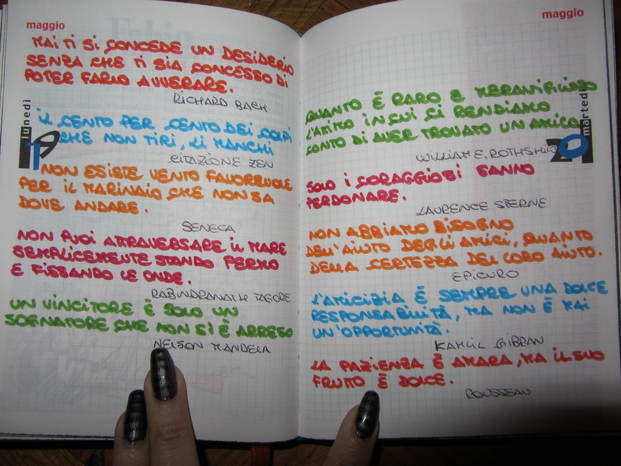 maggio
MAI TI SI CONCEDE UN DESIDERIO
SENZA CHE TI SIA CONCESSO DI
POTER FARLO AVVERARE.
RICHARD BACH
lunedì
19
IL CENTO PER CENTO DEI COLPI
CHE NON TIRI, LI MANCHI
CITAZIONE ZEN
NON ESISTE VENTO FAVOREVOLE
PER IL MARINAIO CHE NON SA
DOVE ANDARE.
SENECA
NON PUOI ATTRAVERSARE IL MARE
SEMPLICEMENTE STANDO FERMO
E FISSANDO LE ONDE.
RABINDRANATH TAGORE
UN VINCITORE È SOLO UN
SOGNATORE CHE NON SI È ARRESO
NELSON MANDELA
maggio
QUANTO È RARO E MERAVIGLIOSO
L'ATTIMO IN CUI CI RENDIAMO
CONTO DI AVER TROVATO UN AMICO.
martedì
20
WILLIAM E. ROTHSHIL
SOLO I CORAGGIOSI SANNO
PERDONARE.
LAURENCE STERNE
NON ABBIAMO BISOGNO
DELL'AIUTO DEGLI AMICI, QUANTO
DELLA CERTEZZA DEL LORO AIUTO.
EPICURO
L'AMICIZIA È SEMPRE UNA DOLCE
RESPONSABILITÀ, MA NON È MAI
UN'OPPORTUNITÀ.
KAHLIL GIBRAN
LA PAZIENZA È AMARA, MA IL SUO
FRUTTO È DOLCE.
ROUSSEAU